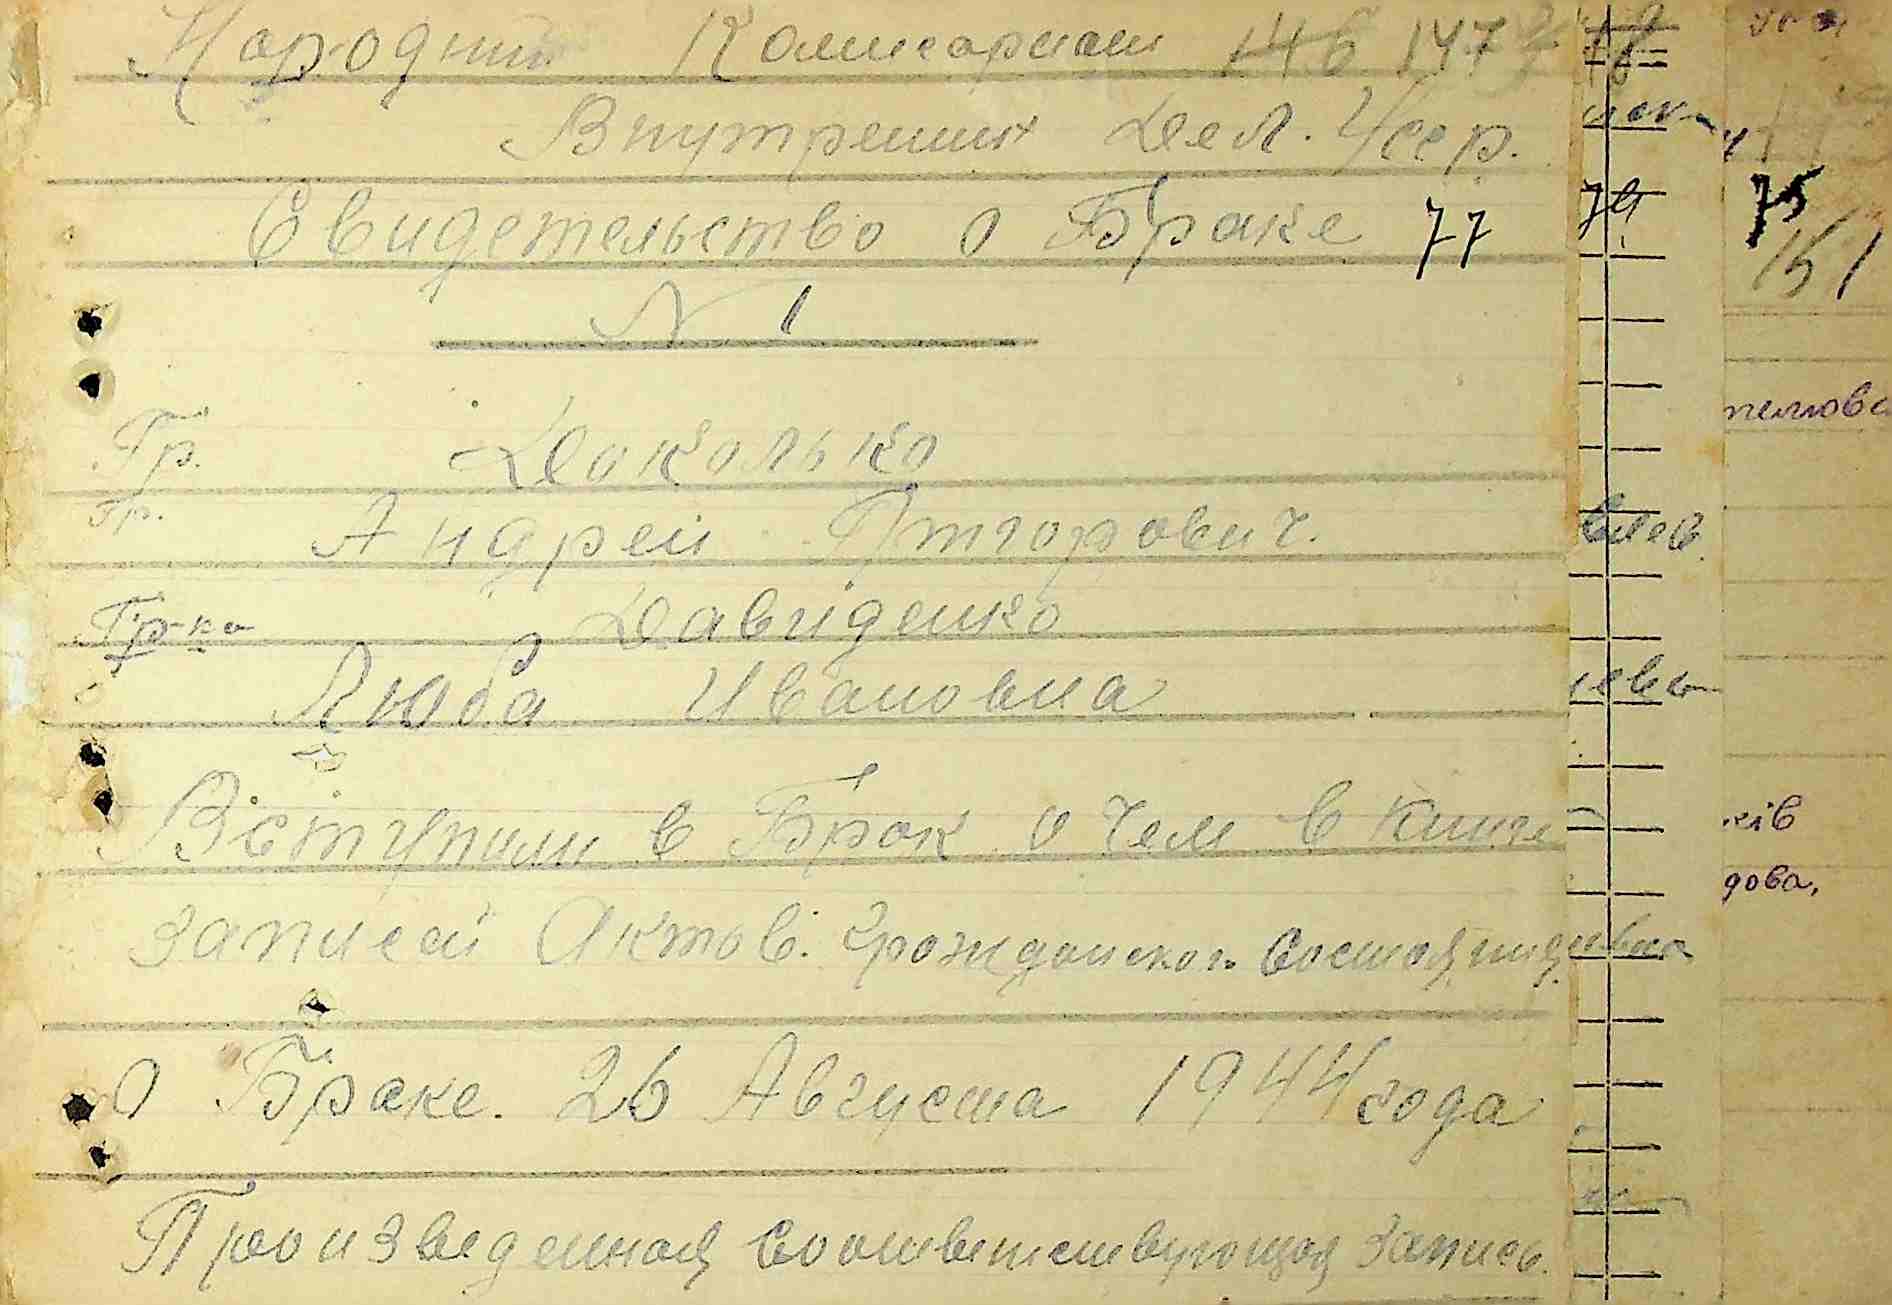 Народний Комисариат 146 147
Внутрених Дел. Усср.
Свидетельство о Браке 77
N 1
Гр. Доколько
Гр. Андрей Григорович.
Гр-ка Давиденко
Люба Ивановна
Вступили в Брак о чем в книге
записей Актов. Гражданского Состояния
о Браке. 26 Августа 1944 года
Произведенная Соответствующая Запись.
79
75
151
ків
дова,